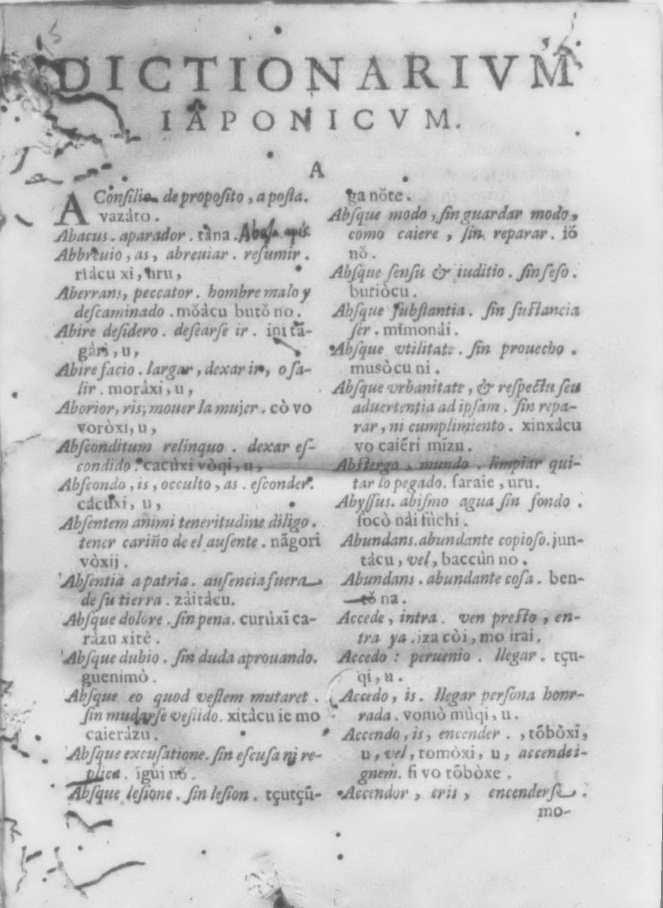 DICTIONARIVM
IAPONICVM.
A
A Conſilio de propoſito, a poſta.
vazáto.
Abacus. aparador. tàna.
Abbreuio, as, abreuiar. reſumir.
riàcu xi, ùru,
Aberrans, peccator. hombre malo y
deſcaminado. mŏàcu butŏ no.
Abire deſidero. deſearſe ir.
gàri, u,
Abire facio. largar, dexar ir, o ſa-
lir. moràxi, u,
Aborior, ris, mouer la mujer. cò vo
voròxi, u,
Abſconditum relinquo. dexar eſ-
condido. cacùxi vòqi, u,
Abſcondo, is, occulto, as. eſconder.
cácùxi, u,
Abſentem animi teneritudine diligo.
tener cariño de el auſente. nāgori
vòxij.
Abſentia a patria. auſencia fuera
de ſu tierra. zàitàcu.
Abſque dolore. ſin pena. curùxī ca-
ràzu xitè.
Abſque dubio. ſin duda aprouando.
guenimò.
Abſque eo quod veſtem mutaret.
ſin mudarſe veſtido. xitàcu ie mo
caieràzu.
Abſque excuſatione. ſin eſcuſa ni re-
plica. igùi nŏ.
Abſque leſione. ſin leſion. tçutçū-
ga nŏte.
Abſque modo, ſin guardar modo,
como caiere, ſin reparar. iŏ
nŏ.
Abſque ſenſu & iuditio. ſin ſeſo.
buriòcu.
Abſque ſubſtantia. ſin ſuſtancia
ſer. mīmonài.
Abſque vtilitate. ſin prouecho.
musòcu ni.
Abſque vrbanitate, & reſpectu ſeu
aduertentia ad ipſam. ſin repa-
rar, ni cumplimiento. xinxàcu
vo caiēri mīzu.
Abſtergo, mundo. limpiar qui-
tar lo pegado. ſaraie, uru.
Abyſſus. abiſmo agua ſin fondo.
ſocò nài fùchi.
Abundans. abundante copioſo. jun-
tàcu, vel, baccùn no.
Abundans. abundante coſa. ben-
tŏ na.
Accede, intra. ven preſto, en-
tra ya. iza còi, mo irai.
Accedo: peruenio. llegar. tçu-
qi, u.
Accedo, is. llegar perſona honr-
rada. vomò mùqi, u.
Accendo, is, encender., tōbòxī,
u, vel, tomòxi, u, accende i-
gnem. fi vo tōbòxe.
Accendor, eris, encenderſe.
mo-